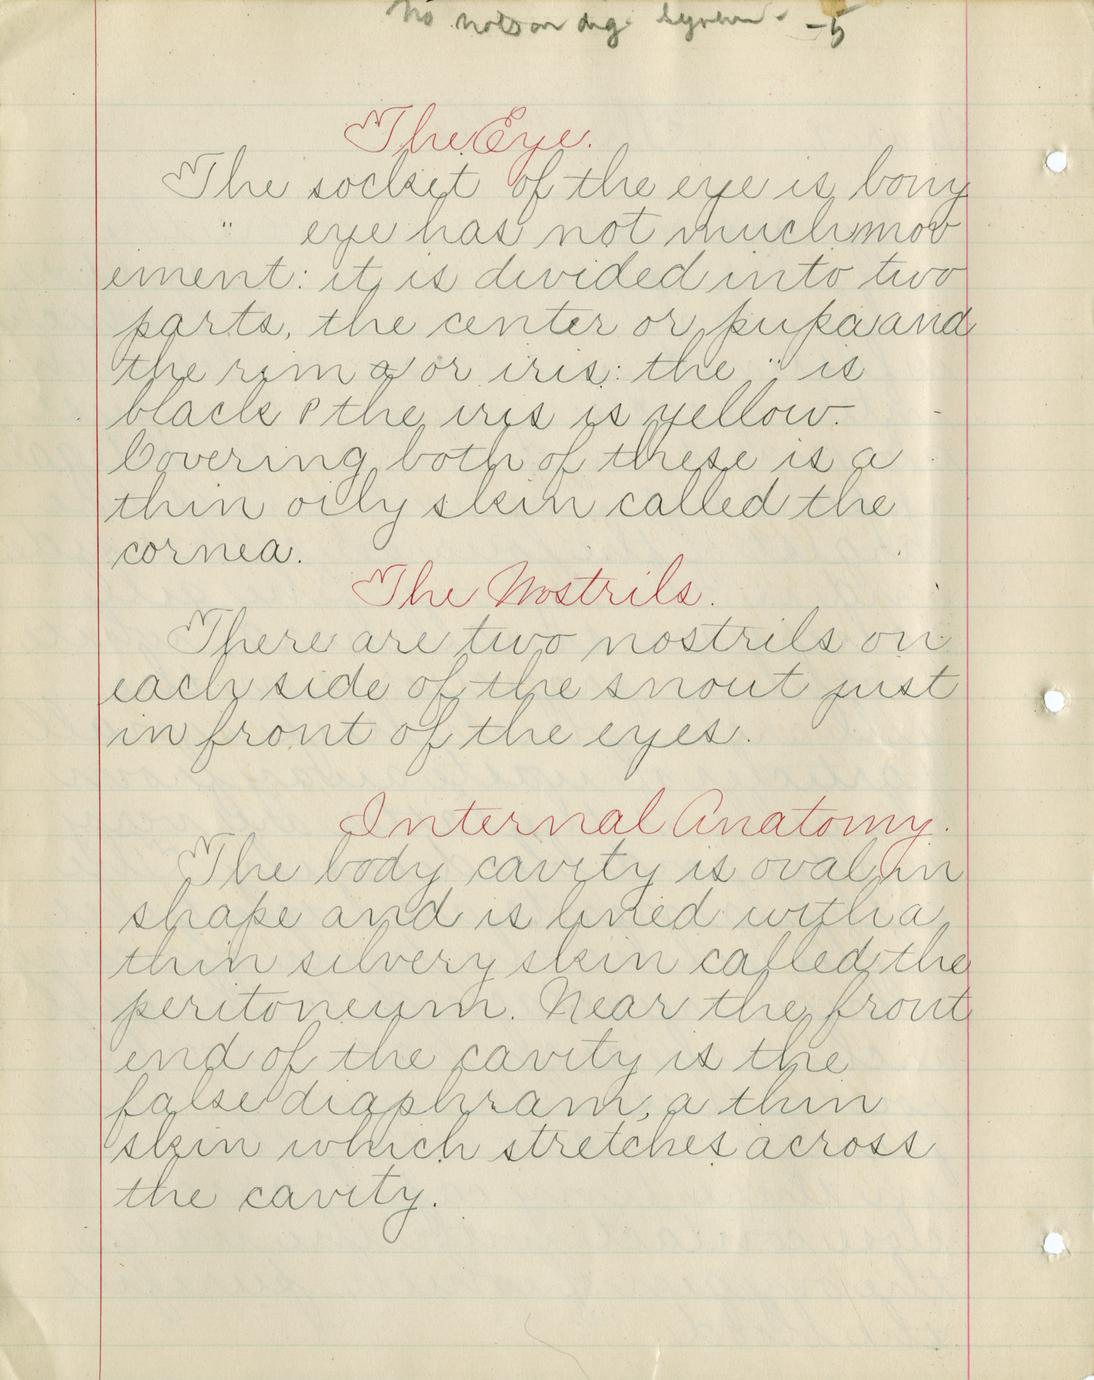 No notes on dig. System - -5
The Eye.
The socket of the eye is bony
" eye has not much mov
ement: it is divided into two
parts, the center or pupa and
the rim or iris: the " is
black & the iris is yellow.
Covering both of these is a
thin oily skin called the
cornea.
The Nostrils.
There are two nostrils on
each side of the snout just
in front of the eyes.
Internal Anatomy.
The body cavity is oval in
shape and is lined with a
thin silvery skin called the
peritoneum. Near the front
end of the cavity is the
false diaphram, a thin
skin which stretches across
the cavity.